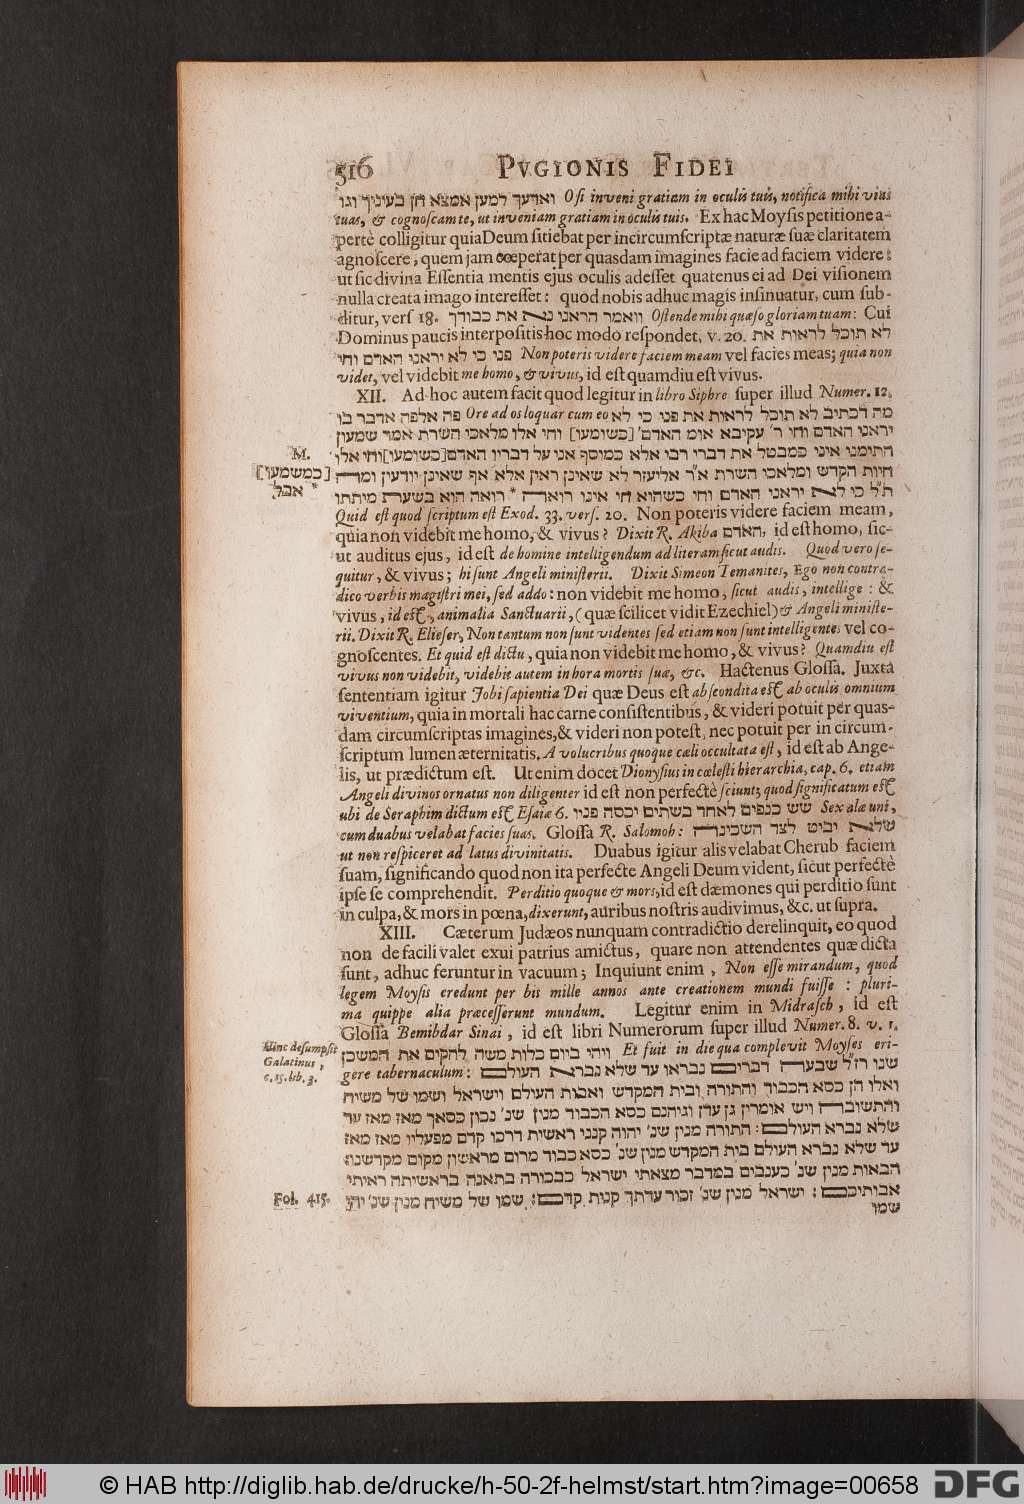 516 PVGIONIS FIDEI
ואדעך למען אמצא חן בעיניך וגו O si inveni gratiam in oculis tuis, notifica mihi vias
tuas, & cognoscam te, ut inveniam gratiam in oculis tuis. Ex hac Moysis petitione a-
pertè colligitur quia Deum sitiebat per incircumscriptæ naturæ suæ claritatem
agnoscere, quem jam cœperat per quasdam imagines facie ad faciem videre:
ut sic divina Essentia mentis ejus oculis adesset quatenus ei ad Dei visionem
nulla creata imago interesset: quod nobis adhuc magis insinuatur, cum sub-
ditur, vers 18. וואמר הראני נא את כבודך Ostende mihi quæso gloriam tuam: Cui
Dominus paucis interpositis hoc modo respondet, v. 20. לא תוכל לראות את
פני כי לא יראני האדם וחי Non poteris videre faciem meam vel facies meas; quia non
videt, vel videbit me homo, & vivus, id est quamdiu est vivus.
XII. Ad hoc autem facit quod legitur in libro Siphre super illud Numer. 12.
פה אלפה אדבר בו Ore ad os loquar cum eo מה דכתיב לא תוכל לראות את פני כי לא
יראני האדם וחי ר׳ עקיבא אומ האדם׳ [כשומעו] וחי אלו מלאכי השרת אמר שמעון
M. התימני איני כמבטל את דברי רבי אלא כמוסף אני על דבריו האדם[כשומעו]וחי אלו
[כמשמעו] חיות הקדש ומלאכי השרת א״ר אליעזר לא שאינן ראין אלא אף שאינן יודעין ומה
* אבל ת״ל כי לא יראני האדם וחי כשהוא חי אינו רואה * רואה הוא בשעת מיתתו
Quid est quod scriptum est Exod. 33. vers. 20. Non poteris videre faciem meam,
quia non videbit me homo, & vivus? Dixit R. Akiba האדם, id est homo, sic-
ut auditus ejus, id est de homine intelligendum ad literam sicut audis. Quod vero se-
quitur, & vivus; hi sunt Angeli ministerii. Dixit Simeon Temanites, Ego non contra-
dico verbis magistri mei, sed addo: non videbit me homo, sicut audis, intellige: &
vivus, id est, animalia Sanctuarii, (quæ scilicet vidit Ezechiel) & Angeli ministe-
rii. Dixit R. Elieser, Non tantum non sunt videntes sed etiam non sunt intelligentes vel co-
gnoscentes. Et quid est dictu, quia non videbit me homo, & vivus? Quamdiu est
vivus non videbit, videbit autem in hora mortis suæ, &c. Hactenus Glossa. Juxta
sententiam igitur Jobi sapientia Dei quæ Deus est abscondita est ab oculis omnium
viventium, quia in mortali hac carne consistentibus, & videri potuit per quas-
dam circumscriptas imagines, & videri non potest, nec potuit per in circum-
scriptum lumen æternitatis. A volucribus quoque cæli occultata est, id est ab Ange-
lis, ut prædictum est. Ut enim docet Dionysius in cœlesti hierarchia, cap. 6. etiam
Angeli divinos ornatus non diligenter id est non perfectè sciunt; quod significatum est
ubi de Seraphim dictum est Esaiæ 6. שש כנפים לאחד בשתים יכסה פניו Sex alæ uni,
cum duabus velabat facies suas. Glossa R. Salomoh: שלא יביט לצד השכינה
ut non respiceret ad latus divinitatis. Duabus igitur alis velabat Cherub faciem
suam, significando quod non ita perfecte Angeli Deum vident, sicut perfectè
ipse se comprehendit. Perditio quoque & mors, id est dæmones qui perditio sunt
in culpa, & mors in pœna, dixerunt, auribus nostris audivimus, &c. ut supra.
XIII. Cæterum Judæos nunquam contradictio derelinquit, eo quod
non de facili valet exui patrius amictus, quare non attendentes quæ dicta
sunt, adhuc feruntur in vacuum; Inquiunt enim, Non esse mirandum, quod
legem Moysis credunt per bis mille annos ante creationem mundi fuisse: pluri-
ma quippe alia præcesserunt mundum. Legitur enim in Midrasch, id est
Glossa Bemibdar Sinai, id est libri Numerorum super illud Numer. 8. v. 1.
Hinc desumpsit ויהי ביום כלות משה להקים את המשכן Et fuit in die qua complevit Moyses eri-
Galatinus, gere tabernaculum: שנו רז״ל שבעה דברים נבראו עד שלא נברא העולם
c. 15. lib. 3. ואלו הן כסא הכבוד והתורה ובית המקדש ואבות העולם וישראל ושמו של משיח
והתשובה ויש אומרין גן עדן וגיהנם כסא הכבוד מנין שנ׳ נכון כסאך מאז מאז עד
שלא נברא העולם: התורה מנין שנ׳ יהוה קנני ראשית דרכו קדם מפעליו מאז מאז
עד שלא נברא העולם בית המקדש מנין שנ׳ כסא כבוד מרום מראשון מקום מקדשנו:
הבאות מנין שנ׳ כענבים במדבר מצאתי ישראל כבכורה בתאנה בראשיתה ראיתי
Fol. 415. אבותיכם: ישראל מנין שנ׳ זכור עדתך קנית קדם: שמו של משיח מנין שנ׳ יהי
שמו
© HAB http://diglib.hab.de/drucke/h-50-2f-helmst/start.htm?image=00658 DFG